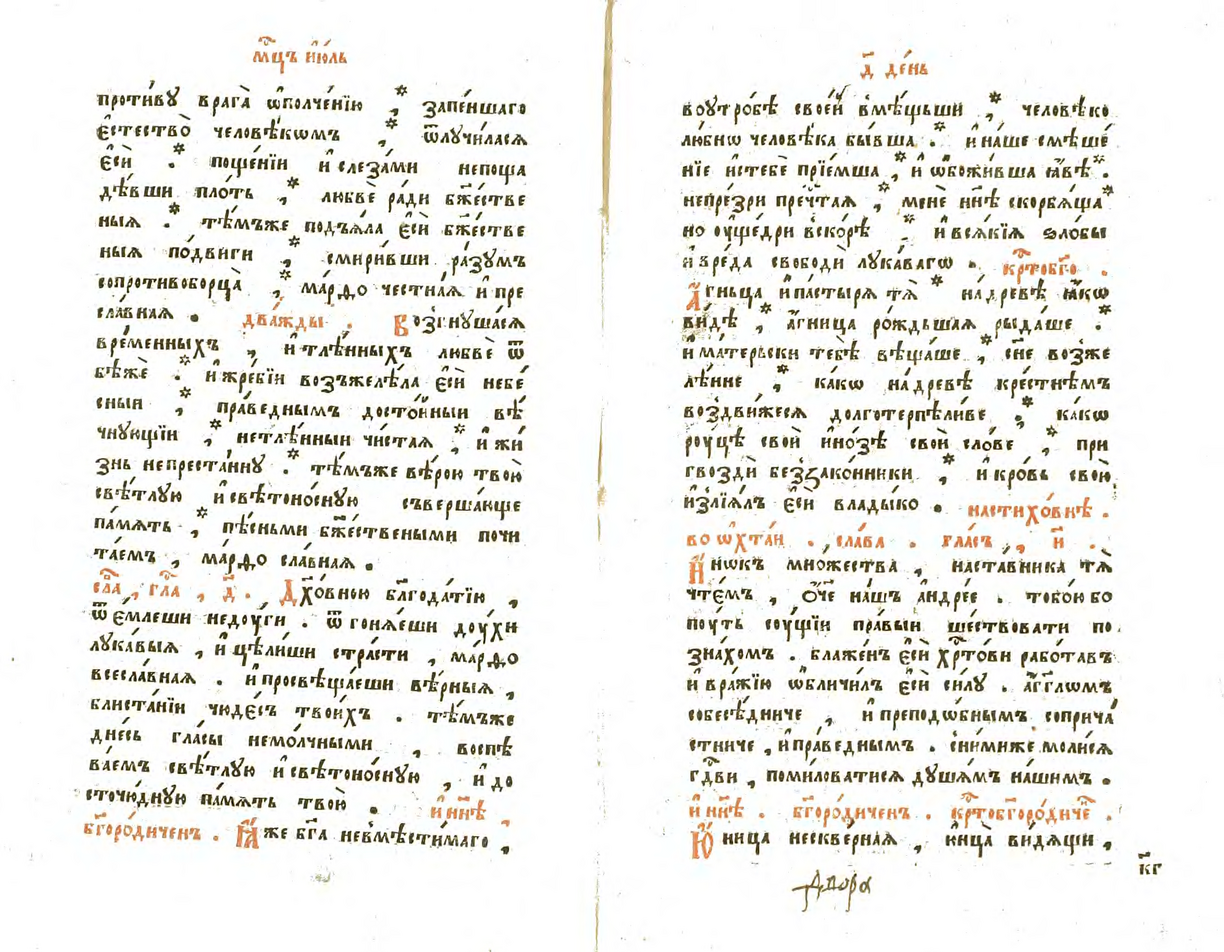 мⷭ҇цъ и҆ю́ль
проти́вꙋ врага̀ ѡ҆полче́нїю , * запе́ншаго
є҆стество̀ человѣ́кѡмъ , * ѿлꙋчи́ласѧ
є҆сѝ * . поще́нїи и҆ слеза́ми непоща
дѣ́вши пло́ть , * любвѐ ра́ди бж҃е́стве
ныѧ . * тѣ́мъже подъѧ́ла є҆сѝ бж҃е́стве
ныѧ по́двиги , * смири́вши ра́зꙋмъ
сопротивобо́рца , * ма́рдо честна́ѧ и҆ пре
сла́внаѧ . два́жды . Возгнꙋша́сѧ
вре́менныхъ , и҆ тлѣ́нныхъ любвѐ ѿ
бѣжѐ * . и҆ жре́бїи возъжелѣ́ла є҆сѝ небе́
сныи , * пра́веднымъ досто́йныи вѣ
чнꙋющїи , * нетлѣ́нныи чи́стаѧ , * и҆ жи́
знь непреста́ннꙋ . * тѣ́мъже вѣ́рою твою̀
свѣ́тлꙋю и҆ свѣтоно́снꙋю съверша́юще
па́мѧть , * пѣ́сньми бж҃е́ствеными почи
та́емъ , ма́рдо сла́внаѧ .
сла́ва , гла́ , д҃ . Дх҃о́вною бл҃года́тїю ,
ѿе́млеши недоу́ги . ѿгонѧ́еши доу́хи
лꙋка́выѧ , и҆ цѣли́ши стра́сти , ма́рдо
всесла́внаѧ . и҆ просвѣща́еши вѣ́рныѧ ,
блиста́нїи чюде́съ твои́хъ . тѣ́мъже
дне́сь гла́сы немо́лчными , воспѣ
ва́емъ свѣ́тлꙋю и҆ свѣтоно́снꙋю , и҆ до
сточю́днꙋю па́мѧть твою̀ . и҆ нн҃ѣ ,
бг҃оро́диченъ . Ꙗ҆́же бг҃а невмѣсти́маго ,
д҃ де́нь
воутро́бѣ свое́й вмѣ́щьши , * человѣ́ко
лю́бнѡ человѣ́ка бы́вша . * и҆ на́ше смѣше́
нїе и҆стебѐ прїе́мша , * и҆ ѡ҆божи́вша ꙗ҆́вѣ * .
непре́зри пречⷭ҇таѧ , * менѐ нн҃ѣ скорбѧ́ща *
но оу҆ще́дри вско́рѣ , * и҆ всѧ́кїѧ ѕло́бы
и҆ вре́да свободѝ лꙋка́вагѡ . крⷭ҇тобго .
А҆́гньца и҆ па́стырѧ тѧ̀ * на́древѣ ꙗ҆́кѡ
ви́дѣ , * а҆́гница ро́ждьшаѧ рыда́ше . *
и҆ ма́терьски тебѣ̀ вѣща́ше , * сн҃е возже
лѣ́нне , * ка́кѡ на́древѣ кре́стнѣмъ
воздви́жесѧ долготерпѣ́ливе , * ка́кѡ
роу́цѣ свои̑ и҆ но́зѣ свои̑ сло́ве , * при
гвоздѝ беззако́нники , * и҆ кро́вь свою̀
и҆злїѧ́лъ є҆сѝ влады́ко . настихо́внѣ .
во ѡ҆хта́и . , сла́ва . гла́съ , и҃ .
И҆́нокъ мно́жества , наста́вника тѧ̀
чте́мъ , о҆́ч҃е на́шъ а҆ндре́е . тобо́ю бо
поу́ть соу́щїи пра́выи ше́ствовати по
зна́хомъ . блаже́нъ є҆сѝ хрⷭ҇то́ви рабо́тавъ
и҆ вра́жїю ѡ҆бличи́лъ є҆сѝ си́лꙋ . а҆́гг҃лѡмъ
собесѣ́дниче , и҆ преподо́бнымъ соприча́
стниче , и҆ пра́веднымъ . сни́миже моли́сѧ
гдⷭ҇ви , поми́ловатисѧ дꙋша́мъ на́шимъ .
и҆ нн҃ѣ . бг҃оро́диченъ . крⷭ҇тобг҃оро́диче .
Ю҆́ница нескве́рнаѧ , ю҆нца̀ ви́дѧщи ,
к҃г